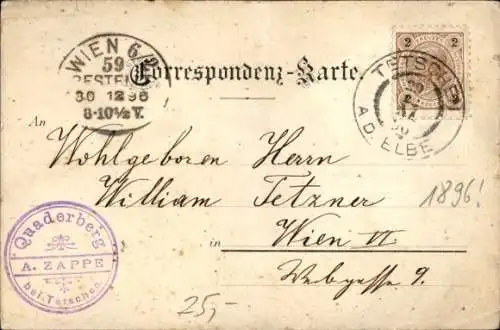 WIEN 6/2
59
BESTELLT
30 12 96
8·10½V.
Correspondenz-Karte.
2 2
TETSCHEN
A.D. ELBE
An
Wohlgeboren Herrn
William Tetzner
1896!
in Wien VI
Webgasse 9.
Quaderberg
A. ZAPPE
bei Tetschen.
25,-